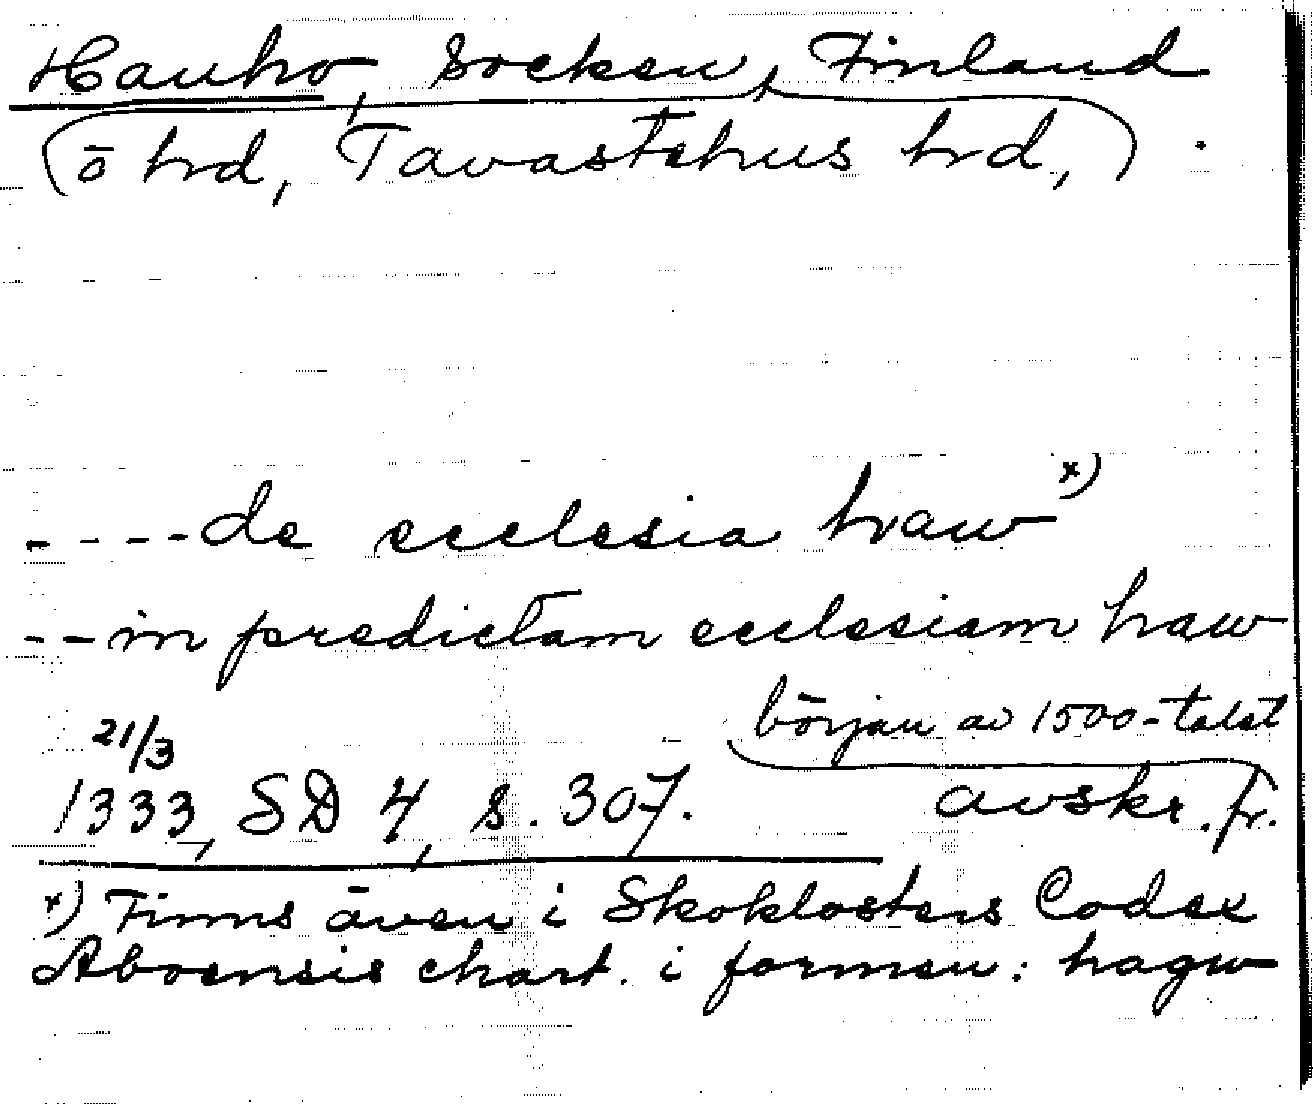 Hauho, Socken, Finland
(ö hrd, Tavastehus hrd,) .
----de ecclesia haw x)
--in predictam ecclesiam haw
21/3
början av 1500-talet
1333, SD 4, s. 307. avskr. fr.
x) Finns även i Skoklosters Codex
Aboensis chart. i formen: hagw